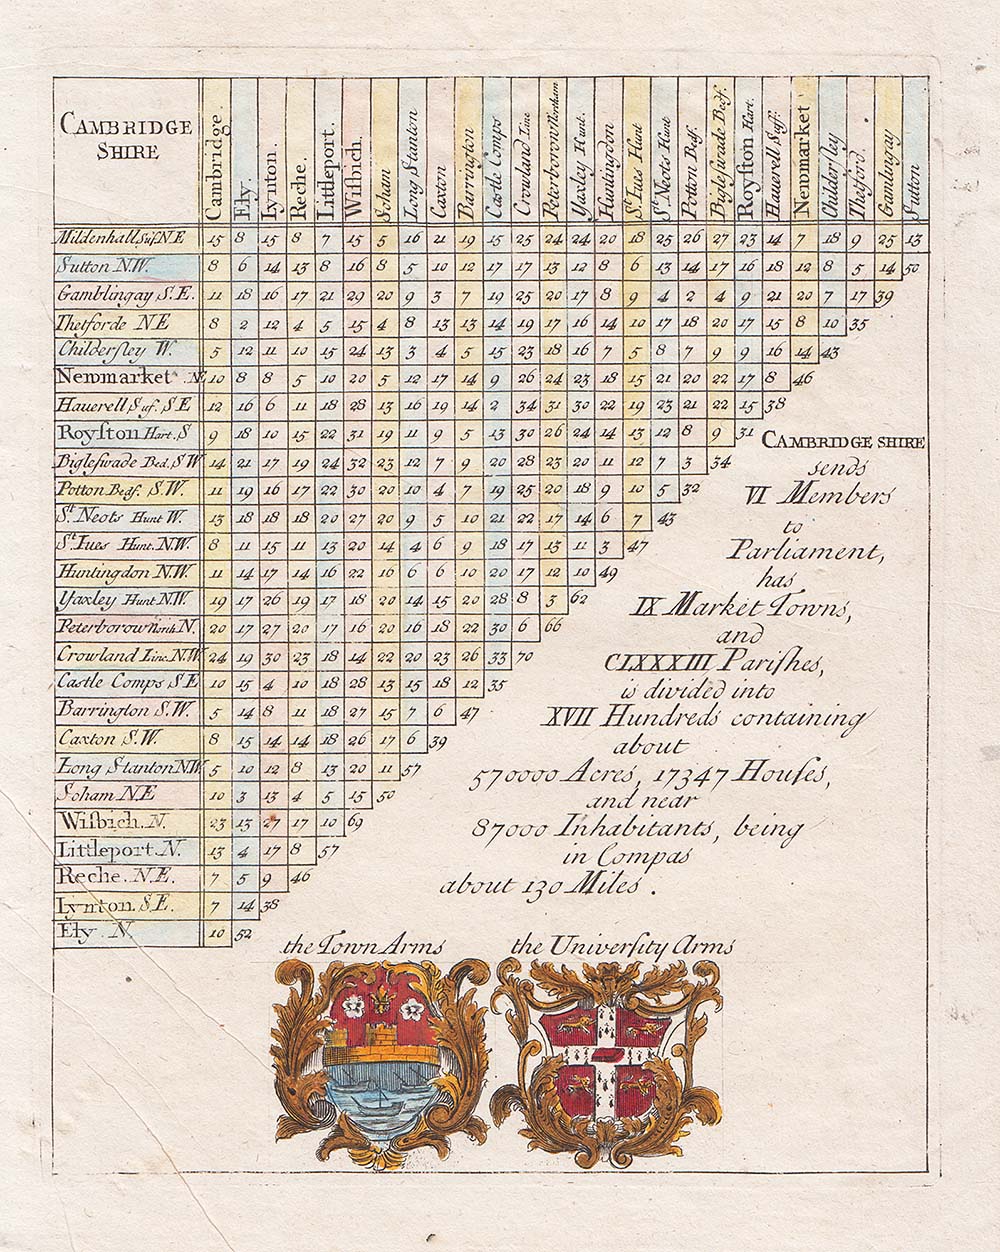 CAMBRIDGE
SHIRE
Cambridge.
Ely.
Lynton.
Reche.
Littleport.
Wiſbich.
Soham
Long Stanton
Caxton
Barrington
Castle Comps
Crowland Line
Peterborow Northam
Yaxley Hunt.
Huntingdon
St. Iues Hunt
St. Neots Hunt
Potton Bedf.
Bigleſwade Bedf.
Royſton Hart.
Hauerell Suff.
Newmarket
Childerſley
Thetford.
Gamlingay
Sutton
Mildenhall Suf. N E 15 8 15 8 7 15 5 16 21 19 15 25 24 24 20 18 25 26 27 23 14 7 18 9 25 13
Sutton N.W. 8 6 14 13 8 16 8 5 10 12 17 17 13 12 8 6 13 14 17 16 18 12 8 5 14 50
Gamblingay S. E. 11 18 16 17 21 29 20 9 3 7 19 25 20 17 8 9 4 2 4 9 21 20 7 17 39
Thetforde N E 8 2 12 4 5 15 4 8 13 13 14 19 17 16 14 10 17 18 20 17 15 8 10 35
Childerſley W. 5 12 11 10 15 24 13 3 4 5 15 23 18 16 7 5 8 7 9 9 16 14 43
Newmarket. NE 10 8 8 5 10 20 5 12 17 14 9 26 24 23 18 15 21 20 22 17 8 46
Hauerell Suf. S E 12 16 6 11 18 28 13 16 19 14 2 34 31 30 22 19 23 21 22 15 38
Royſton Hart. S 9 18 10 15 22 31 19 11 9 5 13 30 26 24 14 13 12 8 9 31
Bigleſwade Bed. S W 14 21 17 19 24 32 23 12 7 9 20 28 23 20 11 12 7 3 34
Potton Bedf. S.W. 11 19 16 17 22 30 20 10 4 7 19 25 20 18 9 10 5 32
St. Neots Hunt W. 13 18 18 18 20 27 20 9 5 10 21 22 17 14 6 7 43
St. Iues Hunt. N.W. 8 11 15 11 13 20 14 4 6 9 18 17 13 11 3 47
Huntingdon N.W. 11 14 17 14 16 22 16 6 6 10 20 17 12 10 49
Yaxley Hunt N.W. 19 17 26 19 17 18 20 14 15 20 28 8 3 62
Peterborow North N. 20 17 27 20 17 16 20 16 18 22 30 6 66
Crowland Linc. N.W. 24 19 30 23 18 14 22 20 23 26 33 70
Castle Comps S E 10 15 4 10 18 28 13 15 18 12 35
Barrington S.W. 5 14 8 11 18 27 15 7 6 47
Caxton S.W. 8 15 14 14 18 26 17 6 39
Long Stanton N W 5 10 12 8 13 20 11 57
Soham N.E 10 3 13 4 5 15 50
Wiſbich. N. 23 13 27 17 10 69
Littleport. N. 13 4 17 8 57
Reche. N.E. 7 5 9 46
Lynton. S.E. 7 14 38
Ely. N. 10 52
CAMBRIDGE SHIRE
sends
VI Members
to
Parliament,
has
IX Market Towns,
and
CLXXXIII Pariſhes,
is divided into
XVII Hundreds containing
about
570000 Acres, 17347 Houſes,
and near
87000 Inhabitants, being
in Compas
about 130 Miles.
the Town Arms
the Univerſity Arms